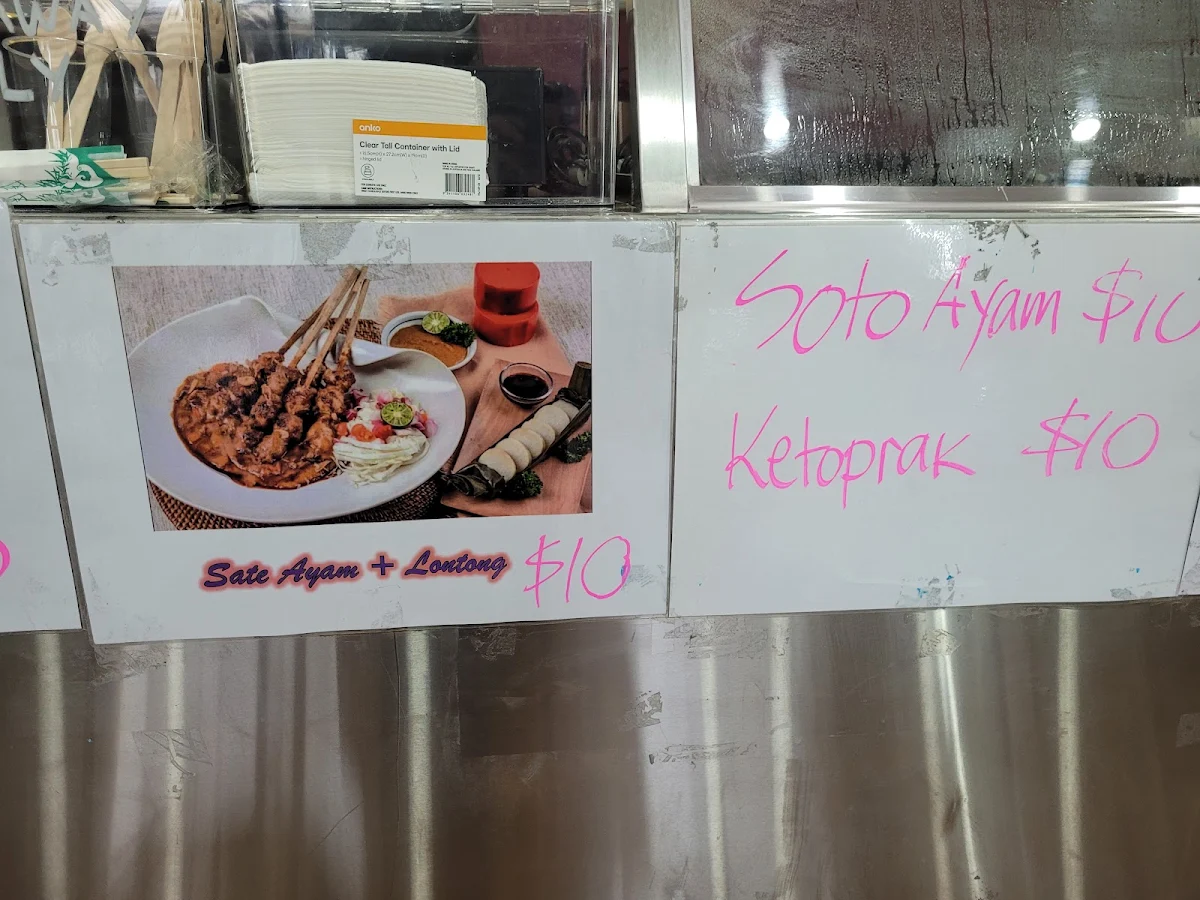 WAY
LY
anko
Clear Tall Container with Lid
Sate Ayam + Lontong $10
Soto Ayam $10
Ketoprak $10